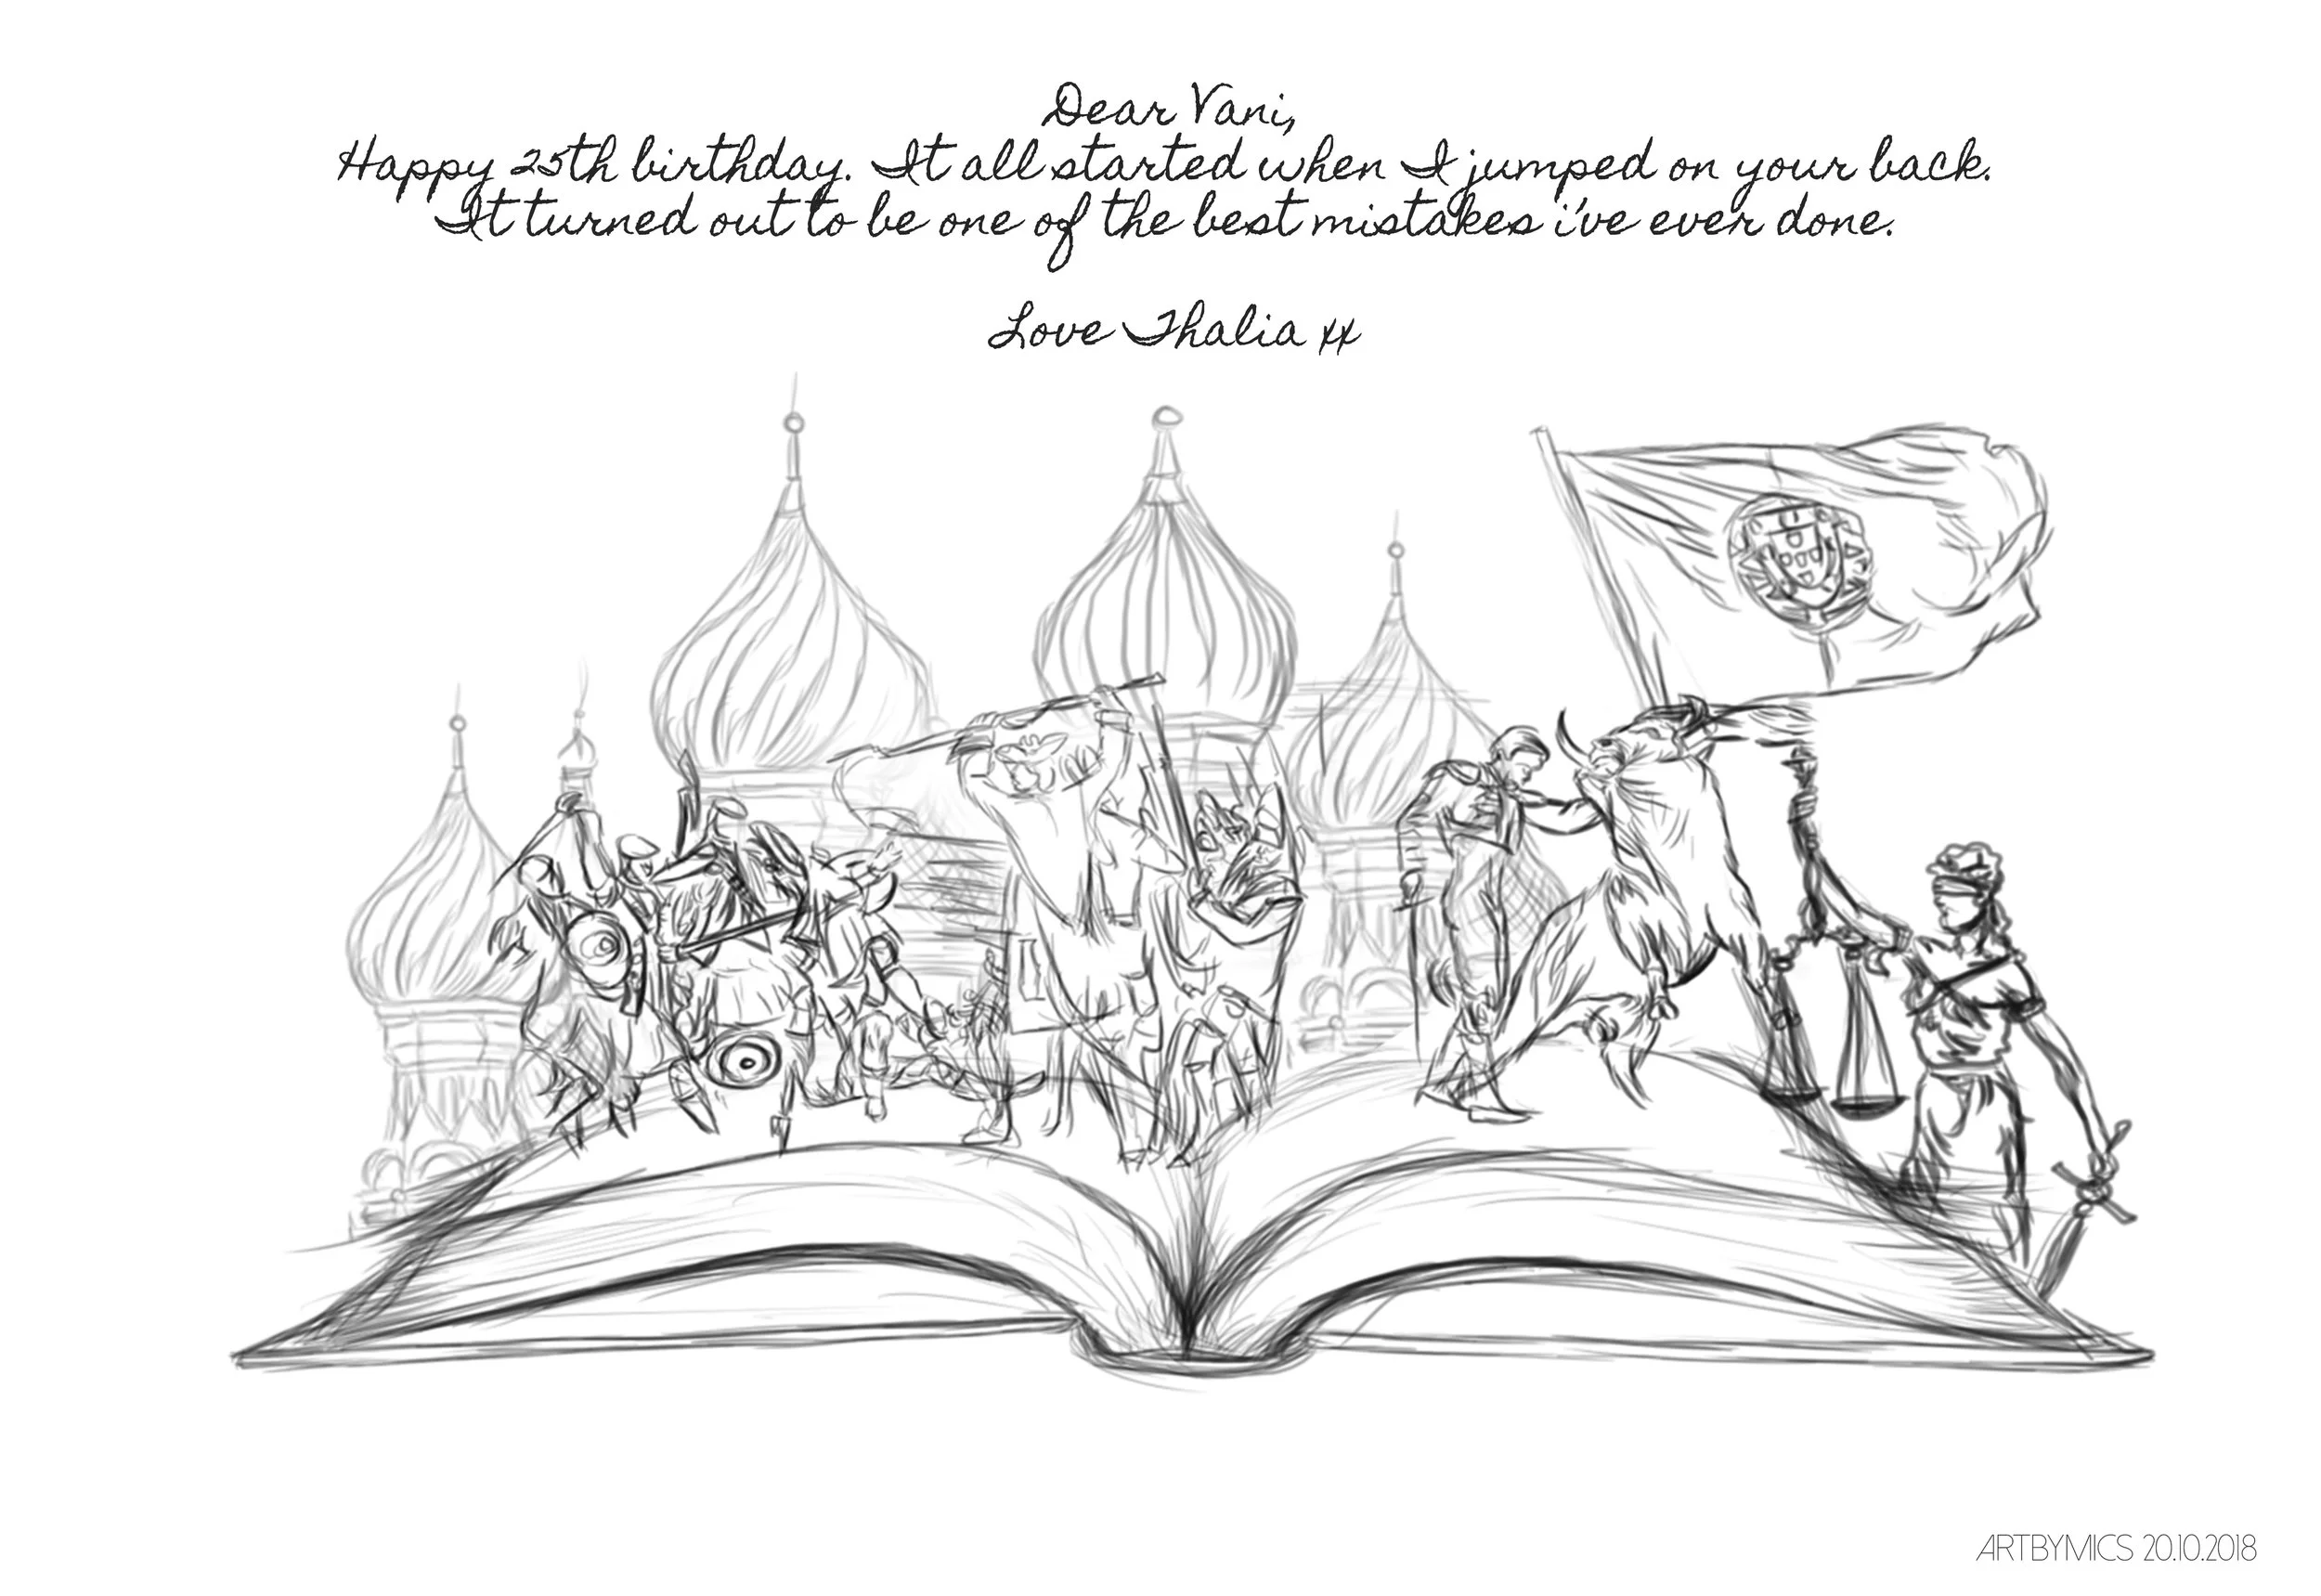 Dear Vani,
Happy 25th birthday. It all started when I jumped on your back.
It turned out to be one of the best mistakes i've ever done.
Love Thalia xx
ARTBYMICS 20.10.2018